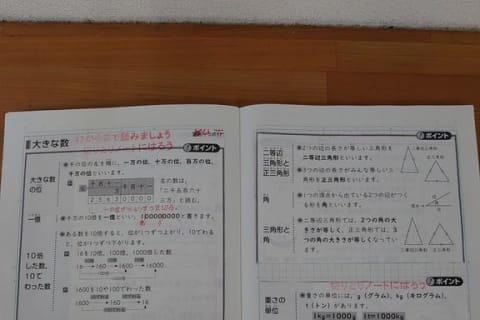 切りとりノートにはろう
大きな数
ポイント
大きな数
の位
●千の位の左を順に、一万の位、十万の位、百万の位、
千万の位といいます。
例
千 百 十 一 千 百 十 一
万
2 5 6 3 0 0 0 0
左の数は、
「二千五百六十
三万」と読む。
一億
●千万の10倍を一億といい、100000000と書きます。
10倍
した数、
10で
わった数
●ある数を10倍すると、位が1つずつ上がり、10でわる
と、位が1つずつ下がります。
例 16を10倍、100倍、1000倍した数
16 → 160 → 1600 → 16000
例 1600を10や100でわった数
1600 → 160 → 16
ポイント
二等辺
三角形と
正三角形
●2つの辺の長さが等しい三角形を
二等辺三角形といいます。
●3つの辺の長さがみんな等しい三角
形を正三角形といいます。
二等辺三角形
正三角形
角
●1つの頂点から出ている2つの辺がつく
る形を角といいます。
三角形と
角
●二等辺三角形では、2つの角の大
きさが等しく、正三角形では、3
つの角の大きさが等しくなってい
ます。
切りとりノートにはろう
ポイント
重さの
単位
●重さの単位には、g(グラム)、kg(キログラム)、
t(トン)があります。
1kg=1000g 1t=1000kg